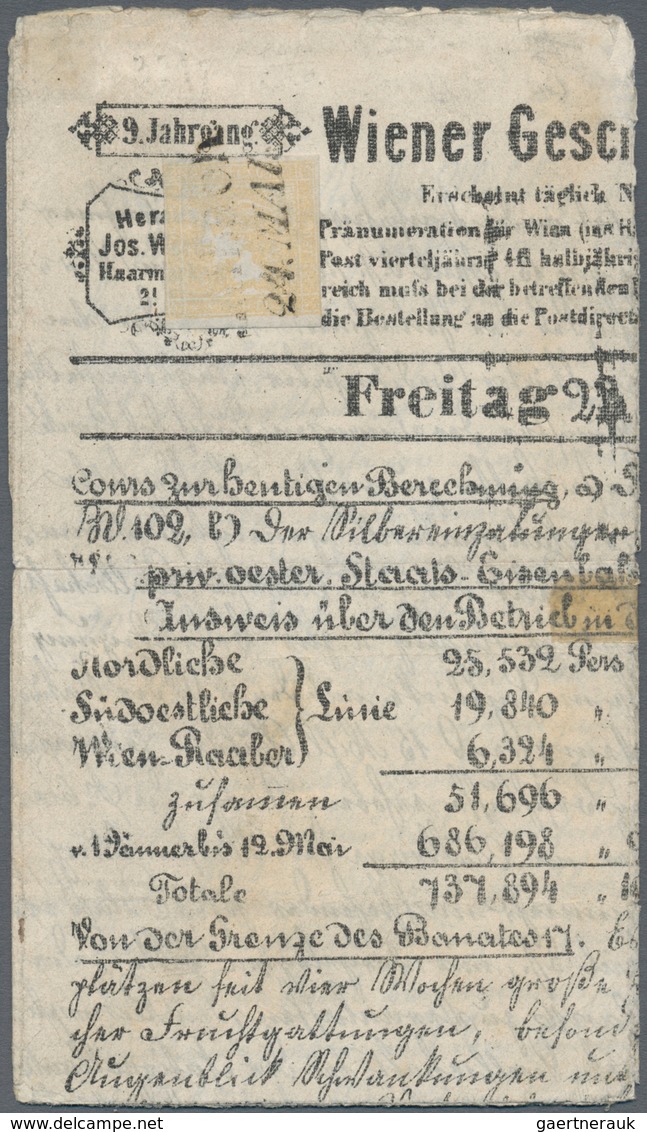 9. Jahrgang
Wiener Gesc
Erscheint täglich N
Hera
Pränumeration für Wien (ins H
Jos. W
Post vierteljährig 4fl halbjähri
Haarm
reich muss bei der betreffenden
die Bestellung an die Postdirect
24. MAI
Freitag 22
Cours zur heutigen Berechnung, a)
W. 102, b) Der Silbereinzalungen
priv. oester. Staats-Eisenbah
Ausweis über den Betrieb in d
Nordliche 25,532 Pers
Südoestliche } Linie 19,840 "
Wien-Raaber 6,324 "
zusammen 51,696 "
v. 1 Jänner bis 12. Mai 686,198 "
Totale 737,894 "
Von der Grenze des Banates 17.
plätzen seit vier Wochen große
cher Fruchtgattungen, besond
Augenblick Schwankungen und
gaertnerauk